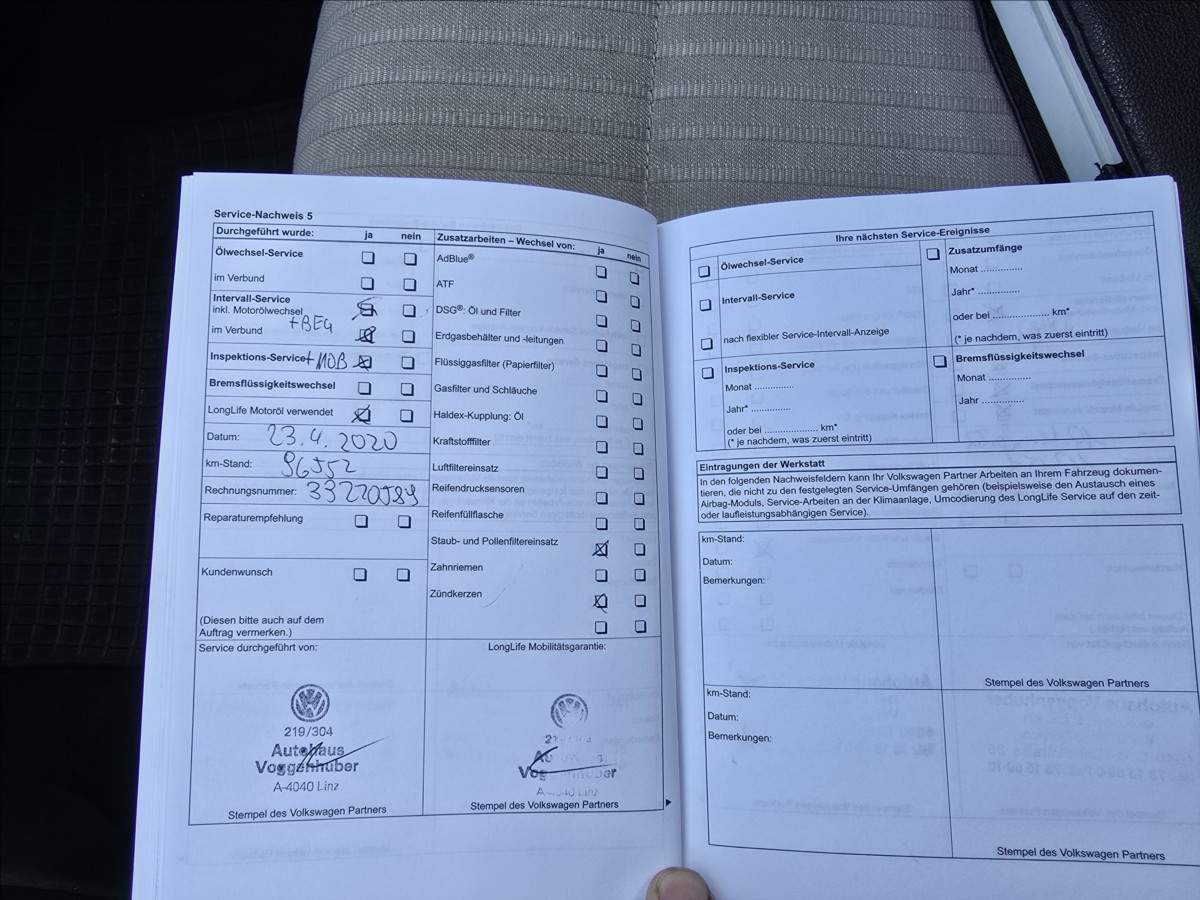 Service-Nachweis 5
Durchgeführt wurde: ja nein
Ölwechsel-Service
im Verbund
Intervall-Service
inkl. Motorölwechsel
+BEG
im Verbund
Inspektions-Service +MOB
Bremsflüssigkeitswechsel
LongLife Motoröl verwendet
Datum: 23.4.2020
km-Stand: 96552
Rechnungsnummer:
Reparaturempfehlung
Kundenwunsch
(Diesen bitte auch auf dem
Auftrag vermerken.)
Zusatzarbeiten – Wechsel von: ja nein
AdBlue®
ATF
DSG®: Öl und Filter
Erdgasbehälter und -leitungen
Flüssiggasfilter (Papierfilter)
Gasfilter und Schläuche
Haldex-Kupplung: Öl
Kraftstofffilter
Luftfiltereinsatz
Reifendrucksensoren
Reifenfüllflasche
Staub- und Pollenfiltereinsatz
Zahnriemen
Zündkerzen
Service durchgeführt von:
219/304
Autohaus
Voggenhuber
A-4040 Linz
Stempel des Volkswagen Partners
LongLife Mobilitätsgarantie:
Stempel des Volkswagen Partners
Ihre nächsten Service-Ereignisse
Ölwechsel-Service
Intervall-Service
nach flexibler Service-Intervall-Anzeige
Inspektions-Service
Monat ..............
Jahr* ..............
oder bei ................... km*
(* je nachdem, was zuerst eintritt)
Zusatzumfänge
Monat ..............
Jahr* ..............
oder bei ................... km*
(* je nachdem, was zuerst eintritt)
Bremsflüssigkeitswechsel
Monat ..............
Jahr ..............
Eintragungen der Werkstatt
In den folgenden Nachweisfeldern kann Ihr Volkswagen Partner Arbeiten an Ihrem Fahrzeug dokumen-
tieren, die nicht zu den festgelegten Service-Umfängen gehören (beispielsweise den Austausch eines
Airbag-Moduls, Service-Arbeiten an der Klimaanlage, Umcodierung des LongLife Service auf den zeit-
oder laufleistungsabhängigen Service).
km-Stand:
Datum:
Bemerkungen:
Stempel des Volkswagen Partners
km-Stand:
Datum:
Bemerkungen:
Stempel des Volkswagen Partners